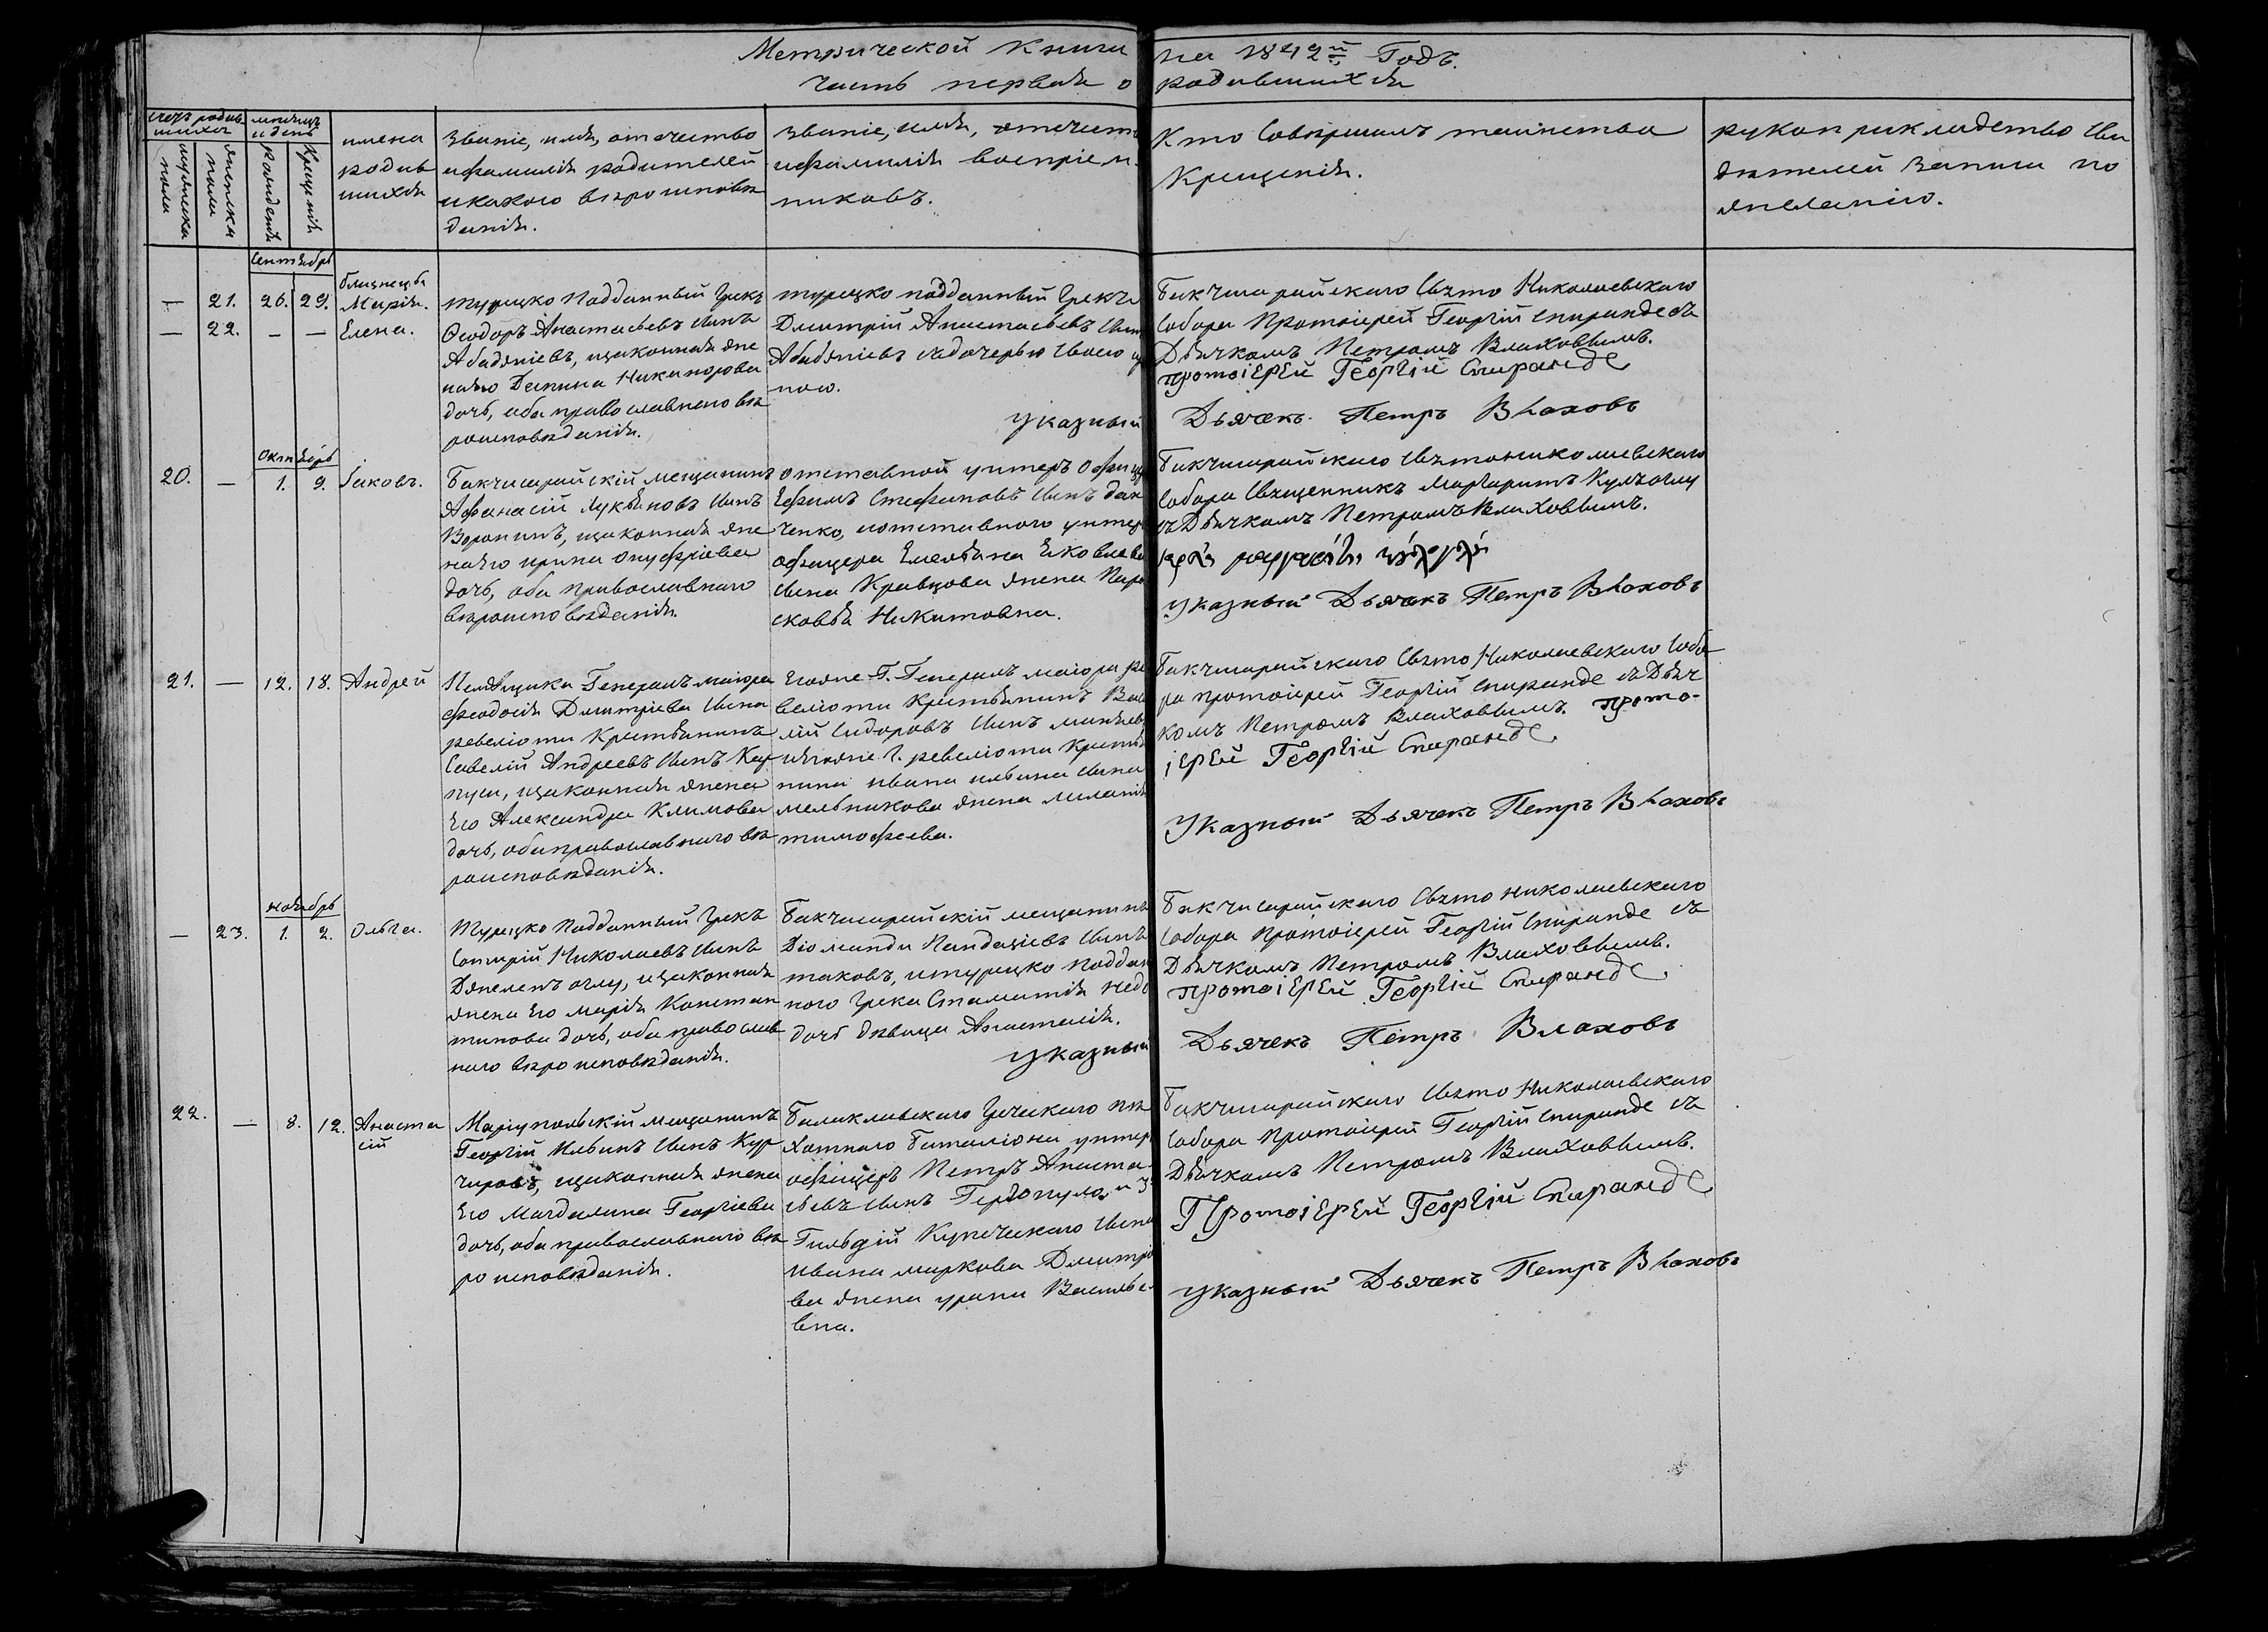 Метрической Книги на 1842й Годъ.
Часть первая о родившихся
счетъ родив
шихся
мужеска
пола
женска
пола
месяцъ
и день
рождения
Крещения
имена
родив
шихся
Званіе, имя, отечество
ифамилія родителей
икакого вѣроисповѣ
данія.
Званіе, имя, отечеств
ифамилія воспріем
никовъ.
Кто Совершалъ таинство
Крещенія.
рукоприкладство Сви
дѣтелей Записи по
желанію.
Сентябрь
— 21. 26. 29. близнецы
Марія.
— 22. — — Елена.
турецко Подданный Грекъ
Ѳеодоръ Анастасьевъ Сынъ
Абаджіевъ, изаконная же
наего Деспина Никифорова
дочь, оба православнаго вѣ
роисповѣданія.
турецко подданный Грекъ
Дмитрій Анастасьевъ Сынъ
Абаджіевъ сѣдочерью Своею
ною.
Бакчисарайскаго Свято Николаевскаго
Собора Протоіерей Георгій Спиранде съ
Дьячкомъ Петромъ Влаховымъ.
протоіерей Георгій Спиранде
Указный Дьячекъ Петръ Влаховъ
Октябрь
20. — 1. 9. Іаковъ.
Бакчисарайскій мещанинъ
Афанасій Лукьяновъ Сынъ
Воронинъ, изаконная же
наего ирина Онуфріева
дочь, оба Православнаго
вѣроисповѣданія.
отставной унтеръ Офиц
Ефимъ Стефановъ Сынъ Дан
ченко, иотставного унтер
офицера Емельяна Яковлева
Сына Кравцова жена Пара
сковья Никитовна.
Бакчисарайскаго Святониколаевскаго
Собора Священникъ Маргаритъ Кулъоглу
съДьячкомъ ПетромъВлаховымъ.
Указный Дьячекъ Петръ Влаховъ
21. — 12. 18. Андрей
Помѣщика Генералъ маіора
Феодосія Дмитріева Сына
ревеліоти Крестьянинъ
Савелій Андреевъ Сынъ Кап
пуси, изаконная жена
Его Александра Климова
дочь, обаправославнаго вѣ
роисповѣданія.
Егоже Г. Генералъ маіора ре
веліоти Крестьянинъ Васи
лій Сидоровъ Сынъ
иЕгоже Г. ревеліоти Кресть
нина ивана ильина Сына
мельникова жена меланія
тимофеева.
Бакчисарайскаго Свято Николаевскаго Собо
ра протоіерей Георгій Спиранде съДьяч
комъ Петромъ Влаховымъ. прото-
іерей Георгій Спиранде
Указный Дьячекъ Петръ Влаховъ
ноябрь
— 23. 1. 2. Ольга.
Турецко Подданный Грекъ
Сотирій Николаевъ Сынъ
Джеленъ оглу, изаконная
жена Его марія Констан
тинова дочь, оба православ
наго вѣроисповѣданія.
Бакчисарайскій мещанинъ
Діоманди Пандазіевъ Сынъ
таковъ, итурецко поддан
наго Грека Стаматія
дочь дѣвица Анастасія.
Бакчисарайскаго Свято николаевскаго
Собора протоіерей Георгій Спиранде съ
Дьячкомъ Петромъ Влаховымъ.
протоіерей Георгій Спиранде
Указный Дьячекъ Петръ Влаховъ
22. — 8. 12. Анаста
сій
Маріупольскій мещанинъ
Георгій Ильинъ Сынъ Кур
чировъ, изаконная жена
Его Магдалина Георгіева
дочь, оба православнаго вѣ
роисповѣданія.
Балаклавскаго Греческаго пѣ
хотнаго Баталіона унтер
офицеръ Петръ Анаста
сьевъ Сынъ и 3й
Гильдій Купеческаго Сына
ивана маркова Дмитріе
ва жена ирина Василье
вна.
Бакчисарайскаго Свято Николаевскаго
Собора протоіерей Георгій Спиранде съ
Дьячкомъ Петромъ Влаховымъ.
Протоіерей Георгій Спиранде
Указный Дьячекъ Петръ Влаховъ